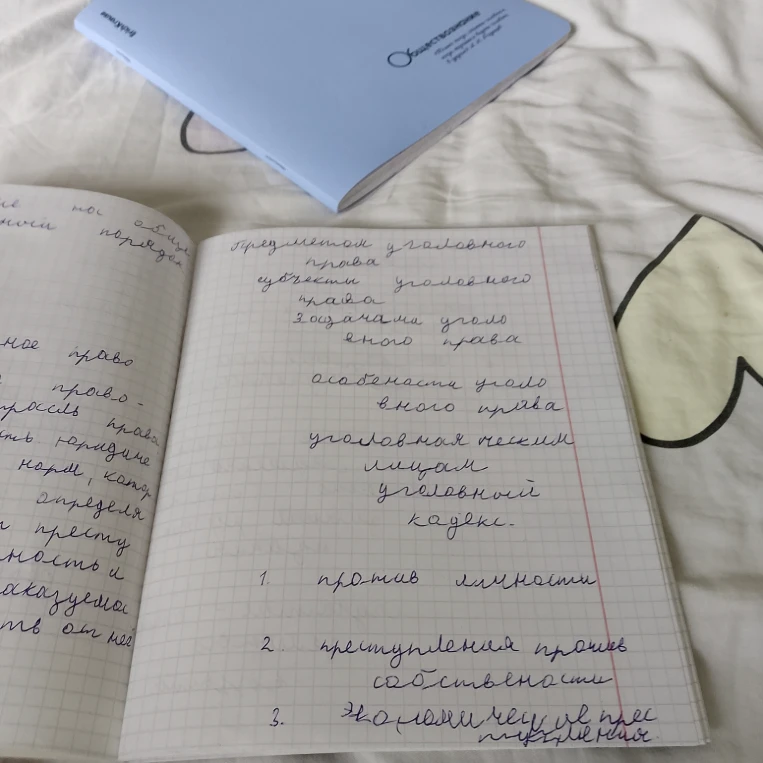 Обществознание
ные пос общ
ный порядок
ное право
право-
трасль права
сть юридиче
норм, котор
определя
престу
ность и
аказуемос
ств от нее
предметом уголовного
права
субъекты уголовного
права
задачами уголо
вного права
особености уголо
вного права
уголовная ческим
лицам
уголовный
кодекс.
1. против личности
2. преступления против
собствености
3. Экономические прес
тупления